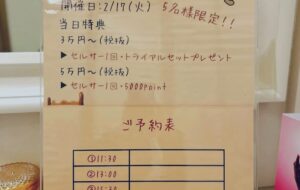 開催日:2/17(火) 5名様限定!!
当日特典
3万円〜(税抜)
▶セルサー1回・トライアルセットプレゼント
5万円〜(税抜)
▶セルサー1回・5000point
ご予約表
①11:30
②13:00